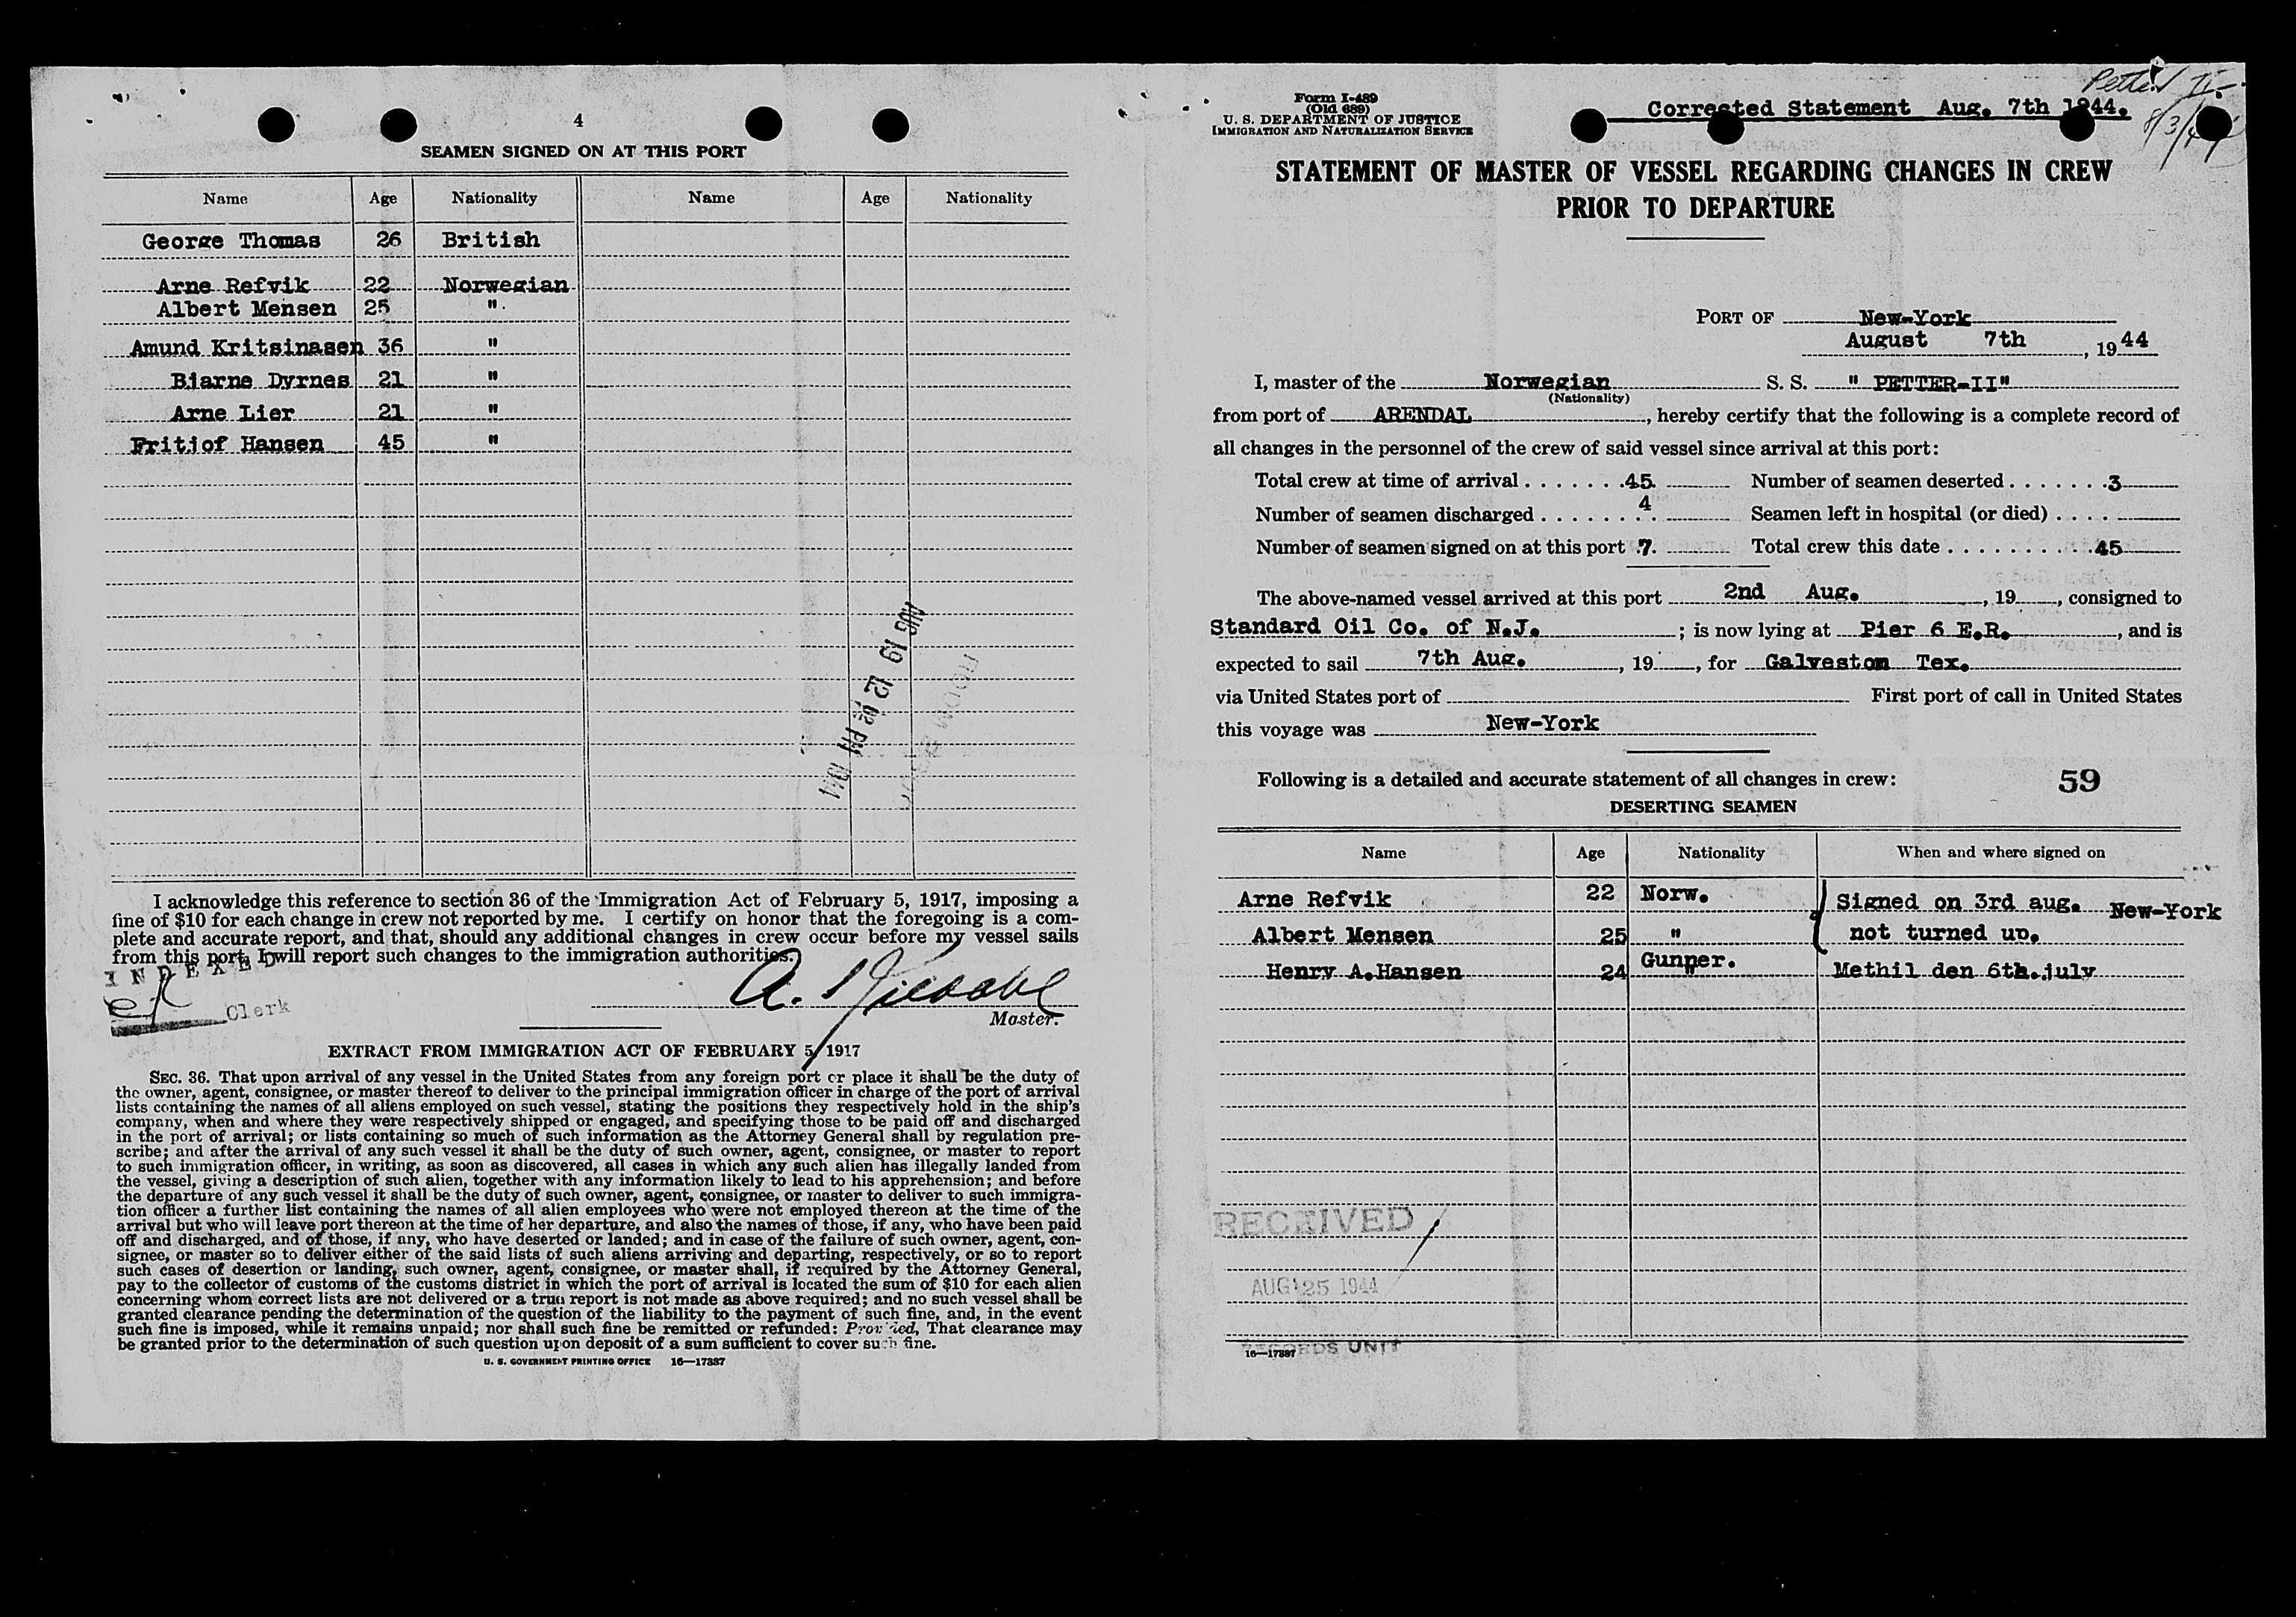 4
SEAMEN SIGNED ON AT THIS PORT
Name Age Nationality Name Age Nationality
George Thomas 26 British
Arne Refvik 22 Norwegian
Albert Mensen 25 " .
Amund Kritsinasen 36 "
Bjarne Dyrnes 21 "
Arne Lier 21 "
Fritjof Hansen 45 "
AUG 19 12 PM 1944
I acknowledge this reference to section 36 of the Immigration Act of February 5, 1917, imposing a
fine of $10 for each change in crew not reported by me. I certify on honor that the foregoing is a com-
plete and accurate report, and that, should any additional changes in crew occur before my vessel sails
from this port, I will report such changes to the immigration authorities.
INDEXED
Clerk
A.
Master.
EXTRACT FROM IMMIGRATION ACT OF FEBRUARY 5, 1917
SEC. 36. That upon arrival of any vessel in the United States from any foreign port or place it shall be the duty of
the owner, agent, consignee, or master thereof to deliver to the principal immigration officer in charge of the port of arrival
lists containing the names of all aliens employed on such vessel, stating the positions they respectively hold in the ship's
company, when and where they were respectively shipped or engaged, and specifying those to be paid off and discharged
in the port of arrival; or lists containing so much of such information as the Attorney General shall by regulation pre-
scribe; and after the arrival of any such vessel it shall be the duty of such owner, agent, consignee, or master to report
to such immigration officer, in writing, as soon as discovered, all cases in which any such alien has illegally landed from
the vessel, giving a description of such alien, together with any information likely to lead to his apprehension; and before
the departure of any such vessel it shall be the duty of such owner, agent, consignee, or master to deliver to such immigra-
tion officer a further list containing the names of all alien employees who were not employed thereon at the time of the
arrival but who will leave port thereon at the time of her departure, and also the names of those, if any, who have been paid
off and discharged, and of those, if any, who have deserted or landed; and in case of the failure of such owner, agent, con-
signee, or master so to deliver either of the said lists of such aliens arriving and departing, respectively, or so to report
such cases of desertion or landing, such owner, agent, consignee, or master shall, if required by the Attorney General,
pay to the collector of customs of the customs district in which the port of arrival is located the sum of $10 for each alien
concerning whom correct lists are not delivered or a true report is not made as above required; and no such vessel shall be
granted clearance pending the determination of the question of the liability to the payment of such fine, and, in the event
such fine is imposed, while it remains unpaid; nor shall such fine be remitted or refunded: Provided, That clearance may
be granted prior to the determination of such question upon deposit of a sum sufficient to cover such fine.
U. S. GOVERNMENT PRINTING OFFICE 16—17387
Form I-489
(Old 689)
U. S. DEPARTMENT OF JUSTICE
IMMIGRATION AND NATURALIZATION SERVICE
Corrected Statement Aug. 7th 1944.
Petter II
8/3/44
STATEMENT OF MASTER OF VESSEL REGARDING CHANGES IN CREW
PRIOR TO DEPARTURE
PORT OF New-York
August 7th, 1944
I, master of the Norwegian S. S. " PETTER-II"
(Nationality)
from port of ARENDAL, hereby certify that the following is a complete record of
all changes in the personnel of the crew of said vessel since arrival at this port:
Total crew at time of arrival . . . . . . . 45. Number of seamen deserted . . . . . . . 3
Number of seamen discharged . . . . . . . 4 Seamen left in hospital (or died) . . . .
Number of seamen signed on at this port 7. Total crew this date . . . . . . . . . 45
The above-named vessel arrived at this port 2nd Aug., 19 , consigned to
Standard Oil Co. of N.J. ; is now lying at Pier 6 E.R. , and is
expected to sail 7th Aug. , 19 , for Galveston Tex.
via United States port of First port of call in United States
this voyage was New-York
Following is a detailed and accurate statement of all changes in crew: 59
DESERTING SEAMEN
Name Age Nationality When and where signed on
Arne Refvik 22 Norw. Signed on 3rd aug. New-York
Albert Mensen 25 " not turned up.
Henry A.Hansen 24 Gunner. " Methil den 6th.july
RECEIVED
AUG 25 1944
RECORDS UNIT
16—17387